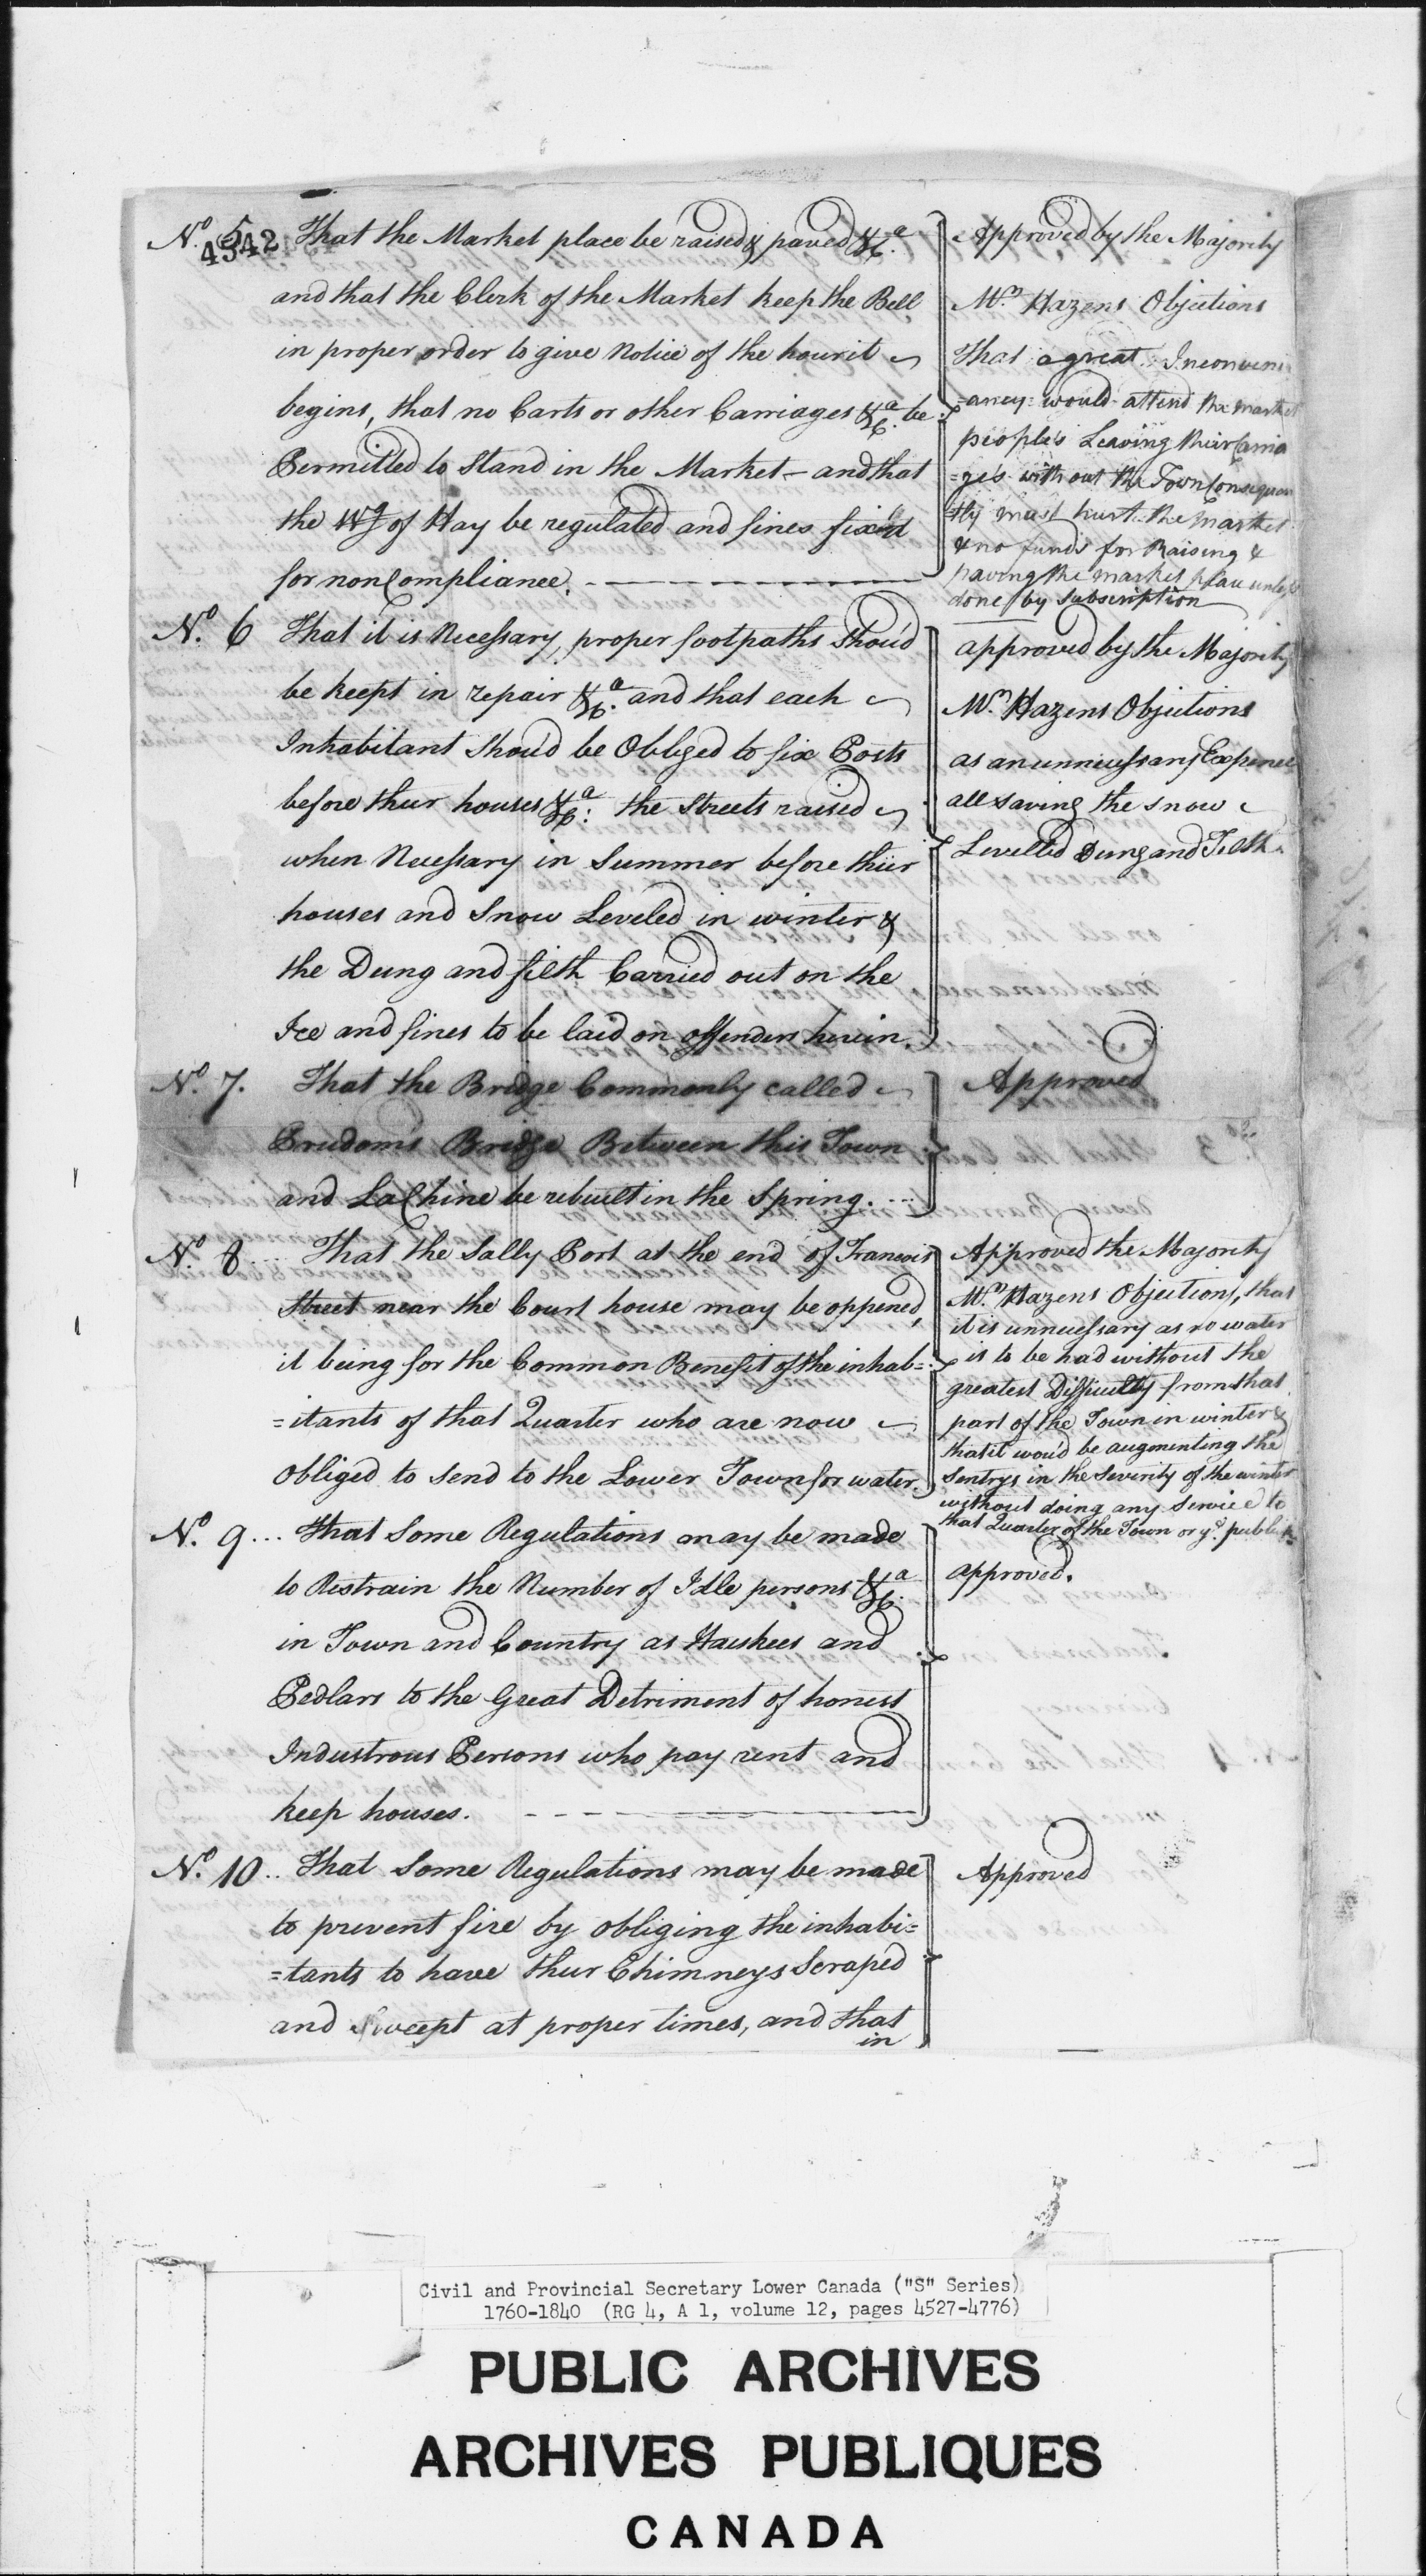 No. 5 That the Market place be raised & paved &ca.
4542
and that the Clerk of the Market keep the Bell
in proper order to give Notice of the hour it
begins, that no Carts or other Carriages &ca. be
Permitted to Stand in the Market - and that
the Wg of Hay be regulated and fines fix'd
for non Compliance. -
Approved by the Majority
Mr. Hazens Objections
That a great Inconveni
=ancy would attend the market
people's Leaving their Carria
=ge's without the Town Consequen
=tly must hurt the Market
& no funds for Raising &
paving the market place unless
done by Subscription
No. 6 That it is Necessary, proper footpaths Shou'd
be keept in repair &ca. and that each
Inhabitant Shou'd be Obliged to fix Posts
before their houses &ca: the Streets raised
when Necessary in Summer before their
houses and Snow Leveled in winter &
the Dung and filth Carried out on the
Ice and fines to be laid on offenders herein.
approved by the Majority
Mr. Hazens Objections
as an unnecessary Expence
all saving the snow
Levelled Dung and Filth
No. 7. That the Bridge Commonly called
Prudom's Bridge Between this Town
and LaChine be rebuilt in the Spring. ...
Approved
No. 8 ... That the Sally Port at the end of Francois
Street near the Court house may be oppened,
it being for the Common Benefit of the inhab=
=itants of that Quarter who are now
Obliged to send to the Lower Town for water.
Approved the Majority
Mr. Hazens Objections, that
it is unnecessary as no water
is to be had without the
greatest Difficulty from that
part of the Town in winter &
that it wou'd be augmenting the
Sentrys in the Severity of the winter
without doing any Service to
that Quarter of the Town or ye. publick
No. 9 ... That Some Regulations may be made
to Restrain the Number of Idle persons &ca.
in Town and Country as Haukees and
Pedlars to the Great Detriment of honest
Industrous Persons who pay rent and
keep houses.
approved.
No. 10 .. That Some Regulations may be made
to prevent fire by obliging the inhabi=
=tants to have their Chimneys Scraped
and Sweept at proper times, and that
in
Approved
Civil and Provincial Secretary Lower Canada ("S" Series)
1760-1840 (RG 4, A 1, volume 12, pages 4527-4776)
PUBLIC ARCHIVES
ARCHIVES PUBLIQUES
CANADA